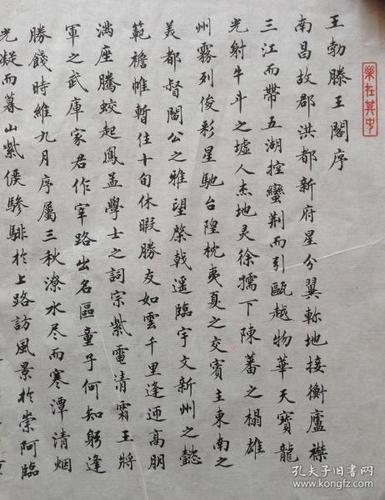 樂在其中
王勃滕王閣序
南昌故郡洪都新府星分翼軫地接衡廬襟
三江而帶五湖控蠻荆而引甌越物華天寶龍
光射牛斗之墟人杰地灵徐孺下陳蕃之榻雄
州霧列俊彩星馳台隍枕夷夏之交賓主東南之
美都督閻公之雅望棨戟遥臨宇文新州之懿
範襜帷暫住十旬休暇勝友如雲千里逢迎高朋
满座騰蛟起鳳孟學士之詞宗紫電清霜王將
軍之武庫家君作宰路出名區童子何知躬逢
勝餞時維九月序屬三秋潦水尽而寒潭清烟
光凝而暮山紫儼驂騑於上路訪風景於崇阿臨
孔夫子旧书网
kongfz.com